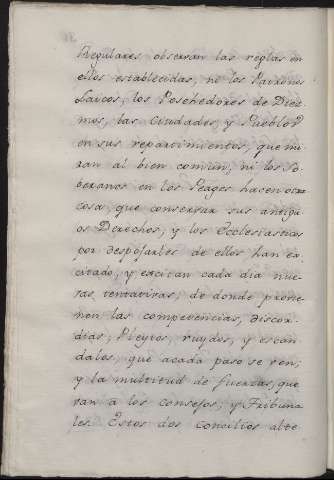 Regulares observan las reglas en
ellos establecidas, ni los Patronos
Laicos, los Poshedores de Diez
mos, las Ciudades, y Pueblos
en sus repartimientos, que mi
ran al bien comun, ni los So
beranos en los Peages hacen otra
cosa, que conservar sus antigu
os Derechos; y los Ecclesiasticos
por despojarles de ellos han ex
citado, y excitan cada dia nue
vas tentativas; de donde provie
nen las competencias, discor
dias, Pleytos, ruydos, y escan
dalos, que acada paso se ven;
y la multitud de fuerzas, que
van a los Consejos, y Tribuna
les. Estos dos Concilios alte